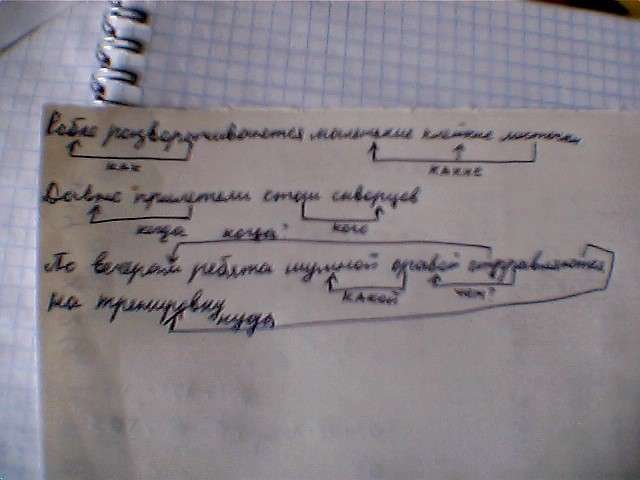 Робко разворачиваются маленькие клейкие листочки
как какие
Давно прилетели стаи скворцов
когда кого
когда?
По вечерам ребята шумной оравой отправляются
какой чем?
на тренировку
куда